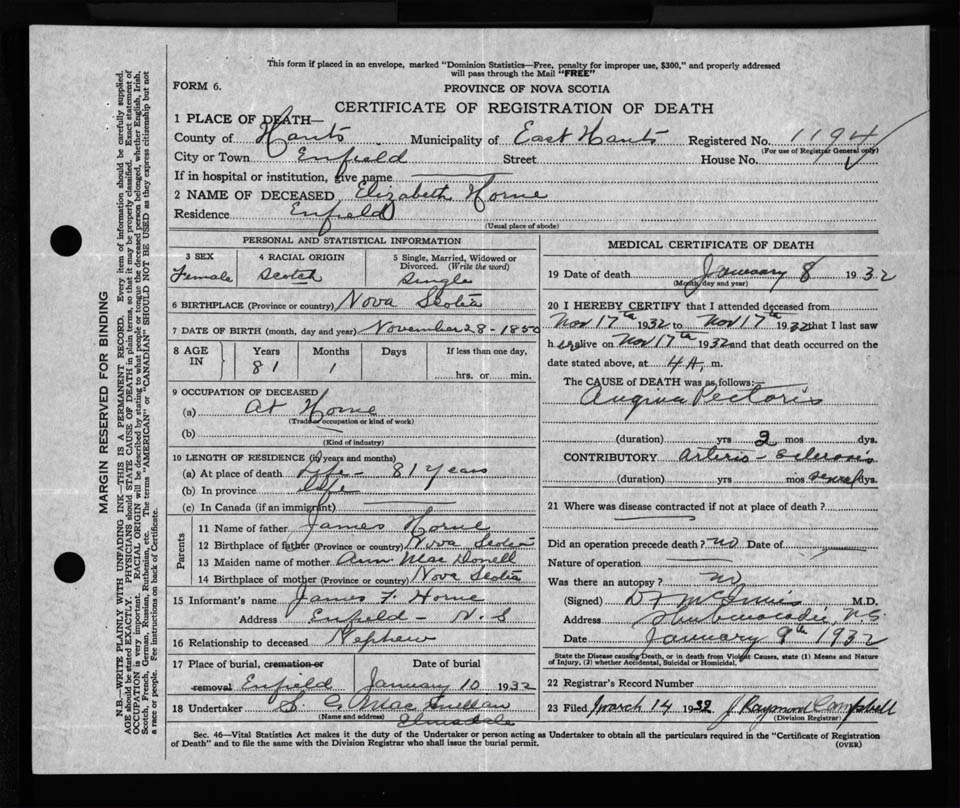 This form if placed in an envelope, marked "Dominion Statistics—Free, penalty for improper use, $300," and properly addressed
will pass through the Mail "FREE"
FORM 6.
PROVINCE OF NOVA SCOTIA
CERTIFICATE OF REGISTRATION OF DEATH
1 PLACE OF DEATH—
County of Hants Municipality of East Hants Registered No. 1194
(For use of Registrar General only)
City or Town Enfield Street House No.
If in hospital or institution, give name
2 NAME OF DECEASED Elizabeth Horne
Residence Enfield
(Usual place of abode)
PERSONAL AND STATISTICAL INFORMATION
3 SEX 4 RACIAL ORIGIN 5 Single, Married, Widowed or
Divorced. (Write the word)
Female Scotch Single
6 BIRTHPLACE (Province or country) Nova Scotia
7 DATE OF BIRTH (month, day and year) November 28-1850
8 AGE IN Years Months Days If less than one day,
81 1 hrs. or min.
9 OCCUPATION OF DECEASED
(a) At Home
(Trade or occupation or kind of work)
(b)
(Kind of industry)
10 LENGTH OF RESIDENCE (in years and months)
(a) At place of death Life - 81 Years
(b) In province Life
(c) In Canada (if an immigrant)
Parents
11 Name of father James Horne
12 Birthplace of father (Province or country) Nova Scotia
13 Maiden name of mother Ann Mac Donell
14 Birthplace of mother (Province or country) Nova Scotia
15 Informant's name James F. Horne
Address Enfield - N.S
16 Relationship to deceased Nephew
17 Place of burial, cremation or Date of burial
removal Enfield January 10 1932
18 Undertaker
(Name and address)
Elmsdale
MEDICAL CERTIFICATE OF DEATH
19 Date of death January 8 1932
(Month, day and year)
20 I HEREBY CERTIFY that I attended deceased from
Nov 17th 1932 to Nov 17th 1932 that I last saw
h er alive on Nov 17th 1932 and that death occurred on the
date stated above, at 4 A. m.
The CAUSE OF DEATH was as follows:—
Angina Pectoris
(duration) yrs 2 mos dys.
CONTRIBUTORY Arterio-Sclerosis
(duration) yrs mos several dys.
21 Where was disease contracted if not at place of death?
Did an operation precede death? no Date of
Nature of operation
Was there an autopsy? no
(Signed) McInnis M.D.
Address Shubenacadie, N.S.
Date January 9th 1932
State the Disease causing Death, or in death from Violent Causes, state (1) Means and Nature
of Injury, (2) whether Accidental, Suicidal or Homicidal.
22 Registrar's Record Number
23 Filed March 14 1932 J Raymond Campbell
(Division Registrar)
Sec. 46—Vital Statistics Act makes it the duty of the Undertaker or person acting as Undertaker to obtain all the particulars required in the "Certificate of Registration
of Death" and to file the same with the Division Registrar who shall issue the burial permit.
(OVER)
MARGIN RESERVED FOR BINDING
N.B.—WRITE PLAINLY WITH UNFADING INK—THIS IS A PERMANENT RECORD. Every item of information should be carefully supplied.
AGE should be stated EXACTLY. PHYSICIANS should STATE CAUSE OF DEATH in plain terms, so that it may be properly classified. Exact statement of
OCCUPATION is very important. RACIAL ORIGIN will be described by stating to what people or tongue the deceased person belonged, whether English, Irish,
Scotch, French, German, Russian, Ruthenian, etc. The terms "AMERICAN" or "CANADIAN" SHOULD NOT BE USED as they express citizenship but not
a race or people. See instructions on back of Certificate.